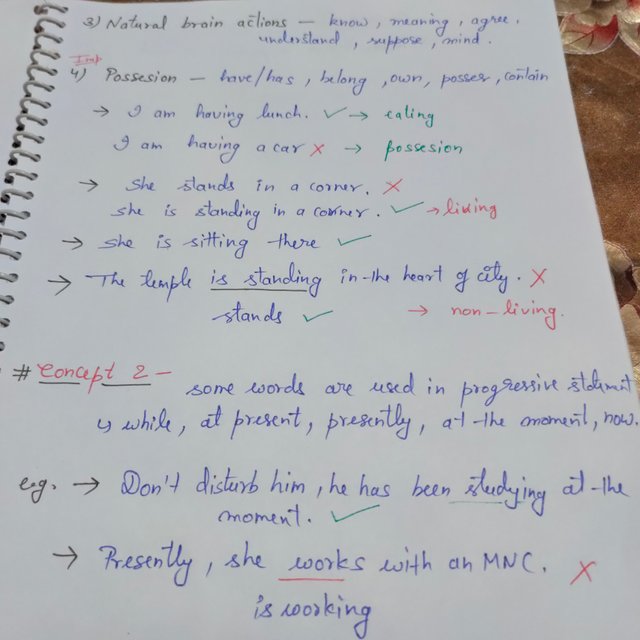 3) Natural brain actions – know, meaning, agree,
understand, suppose, mind.
Imp
4) Possesion – have/has, belong, own, posses, contain
→ I am having lunch. ✓ → eating
I am having a car × → possesion
→ She stands in a corner. ×
she is standing in a corner. ✓ → living
→ she is sitting there ✓
→ The temple is standing in the heart of city. ×
stands ✓ → non-living.
# Concept 2 – some words are used in progressive statement
↳ while, at present, presently, at the moment, now.
e.g. → Don't disturb him, he has been studying at the
moment. ✓
→ Presently, she works with an MNC. ×
is working